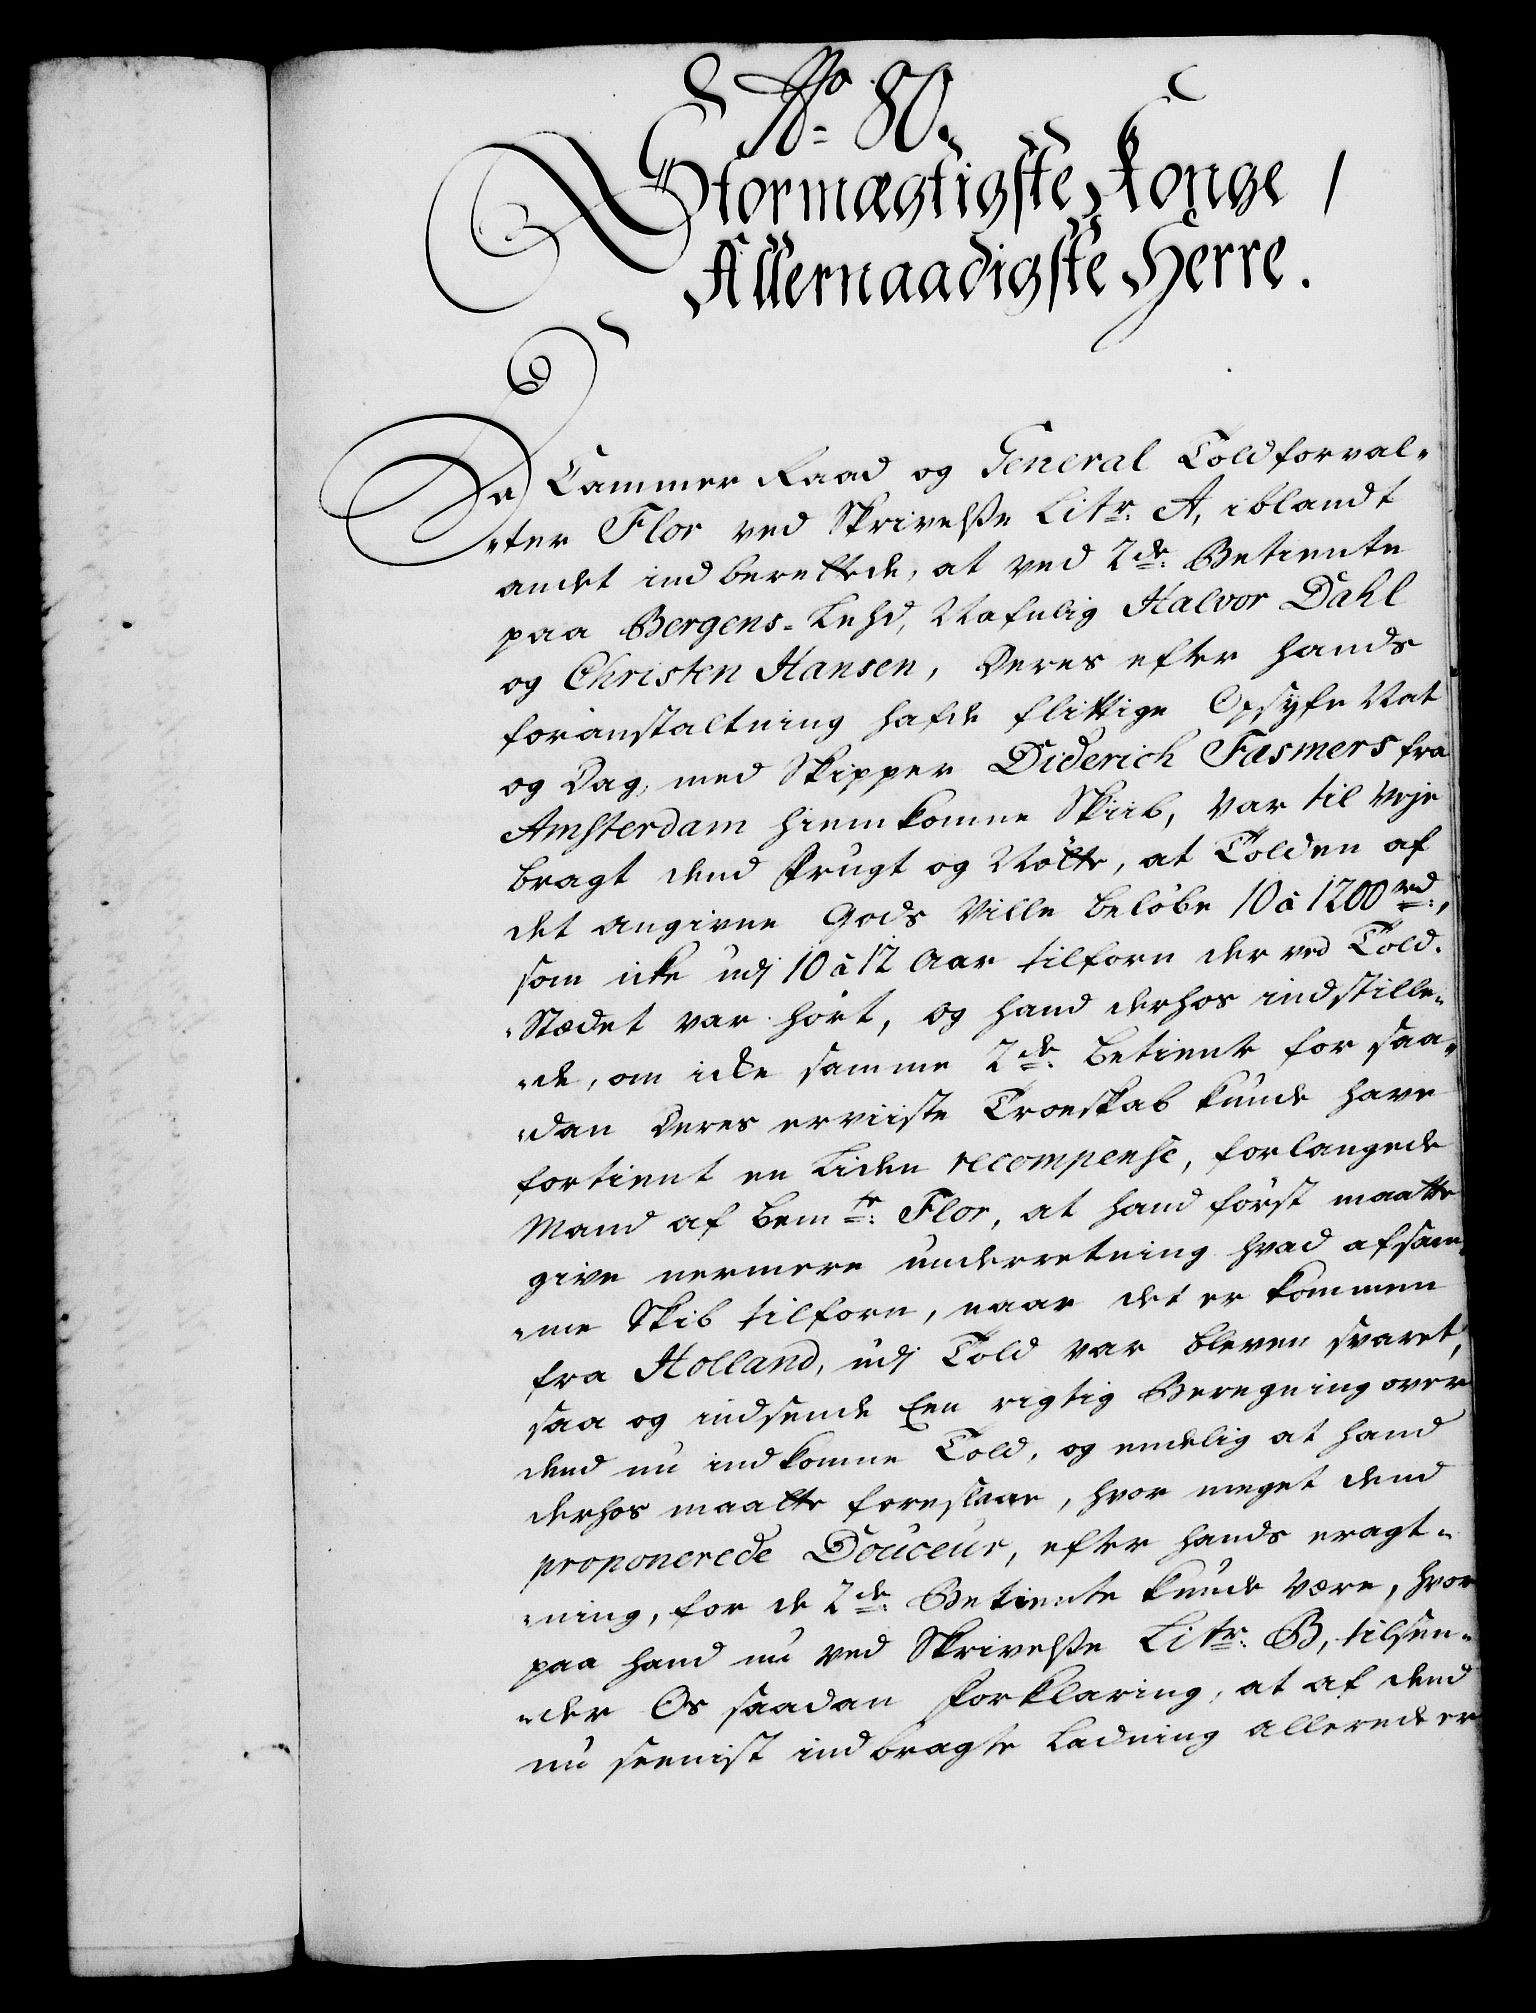 No. 80.
Stormægtigste Konge /
Allernaadigste Herre.
Da Cammer Raad og General Toldforval-
-ter Flor ved Skrivelße Litr. A, iblandt
andet indberettede, at ved 2de. Betiente
paa Bergens-Lehd, Nafnlig Halvor Dahl
og Christen Hansen, deres efter hands
foranstaltning hafde flittige Opsyfn Nat
og Dag, med Skipper Diderich Fasmers fra
Amsterdam hiemkomne Skiib, var til veje
bragt dend Frugt og Nötte, at Tolden af
det angivne Gods Ville beløbe 10 à 1200 rd.,
som icke udj 10 à 12 Aar tilforn der ved Told-
-Stædet var hört, og hand derhos indstille-
-de, om icke samme 2de. betiente for saa-
-dan deres erviiste Troeskab kunde have
fortient en Liden recompense, forlangede
Mand af bemte. Flor, at hand först maatte
give nermere underretning hvad af sam-
-me Skib tilforn, naar det er kommen
fra Holland, udj Told var bleven svaret,
saa og indsende Een rigtig Beregning over
dend nu indkomne Told, og endelig at hand
derhos maatte foreslaae, hvor meget dend
proponerede Douceur, efter hands eragt-
-ning, for de 2de. Betiente kunde være, hvor
paa hand nu ved Skrivelße Litr. B, tilsen-
-der Os saadan Forklaring, at af dend
nu seenist indbragte Ladning allerede er